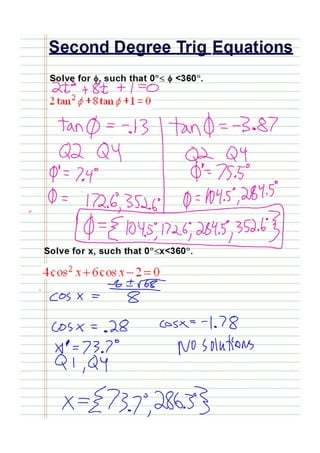 Second Degree Trig Equations
Solve for ϕ, such that 0°≤ ϕ <360°.
2t² + 8t + 1 = 0
2 tan² ϕ + 8 tan ϕ + 1 = 0
tan ϕ = -.13 tan ϕ = -3.87
Q2 Q4 Q2 Q4
ϕ' = 7.4° ϕ' = 75.5°
ϕ = 172.6°, 352.6° ϕ = 104.5°, 284.5°
ϕ = {104.5°, 172.6°, 284.5°, 352.6°}
Solve for x, such that 0°≤x<360°.
4cos² x + 6cos x − 2 = 0
cos x = -6 ± √68 / 8
cos x = .28 cos x = -1.78
x' = 73.7° No solutions
Q1, Q4
x = {73.7°, 286.3°}